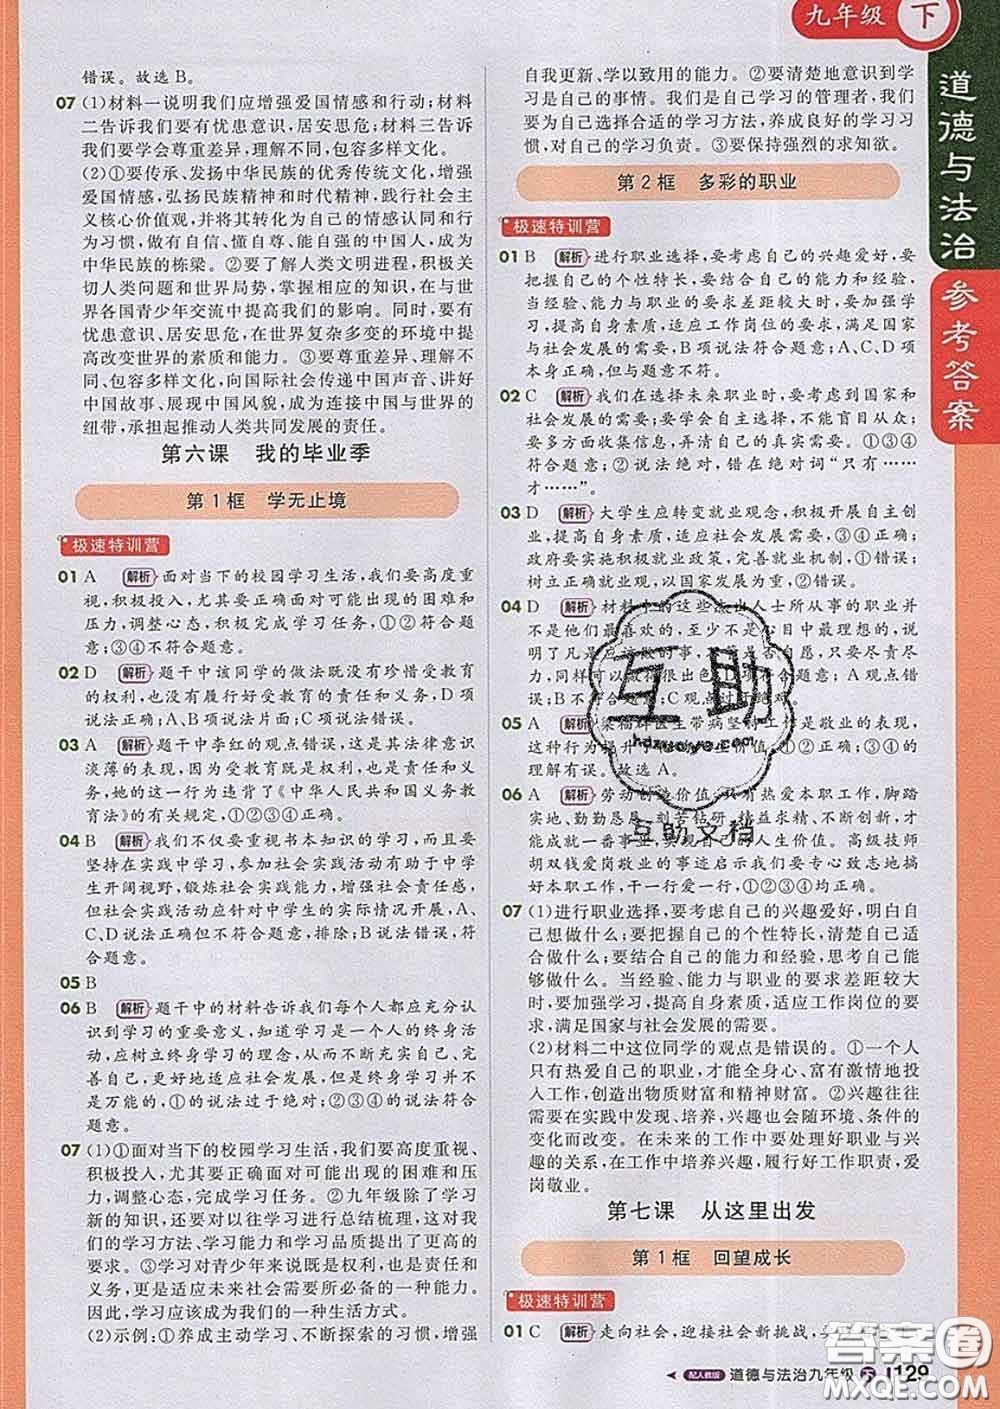 九年级 下
道德与法治
参考答案
错误。故选B。
07 (1)材料一说明我们应增强爱国情感和行动;材料
二告诉我们要有忧患意识,居安思危;材料三告诉
我们要学会尊重差异,理解不同,包容多样文化。
(2)①要传承、发扬中华民族的优秀传统文化,增强
爱国情感,弘扬民族精神和时代精神,践行社会主
义核心价值观,并将其转化为自己的情感认同和行
为习惯,做有自信、懂自尊、能自强的中国人,成为
中华民族的栋梁。②要了解人类文明进程,积极关
切人类问题和世界局势,掌握相应的知识,在与世
界各国青少年交流中提高我们的影响。同时,要有
忧患意识、居安思危,在世界复杂多变的环境中提
提高改变世界的素质和能力。③要尊重差异,理解
不同,包容多样文化,向国际社会传递中国声音、讲好
中国故事、展现中国风貌,成为中国与世界的
纽带,承担起推动人类共同发展的责任。
第六课 我的毕业季
第1框 学无止境
极速特训营
01 A 解析 面对当下的校园学习生活,我们要高度重
视,积极投入,尤其要正确面对可能出现的困难和
压力,调整心态,积极完成学习任务,①②符合题
意;③④不符合题意。
02 D 解析 题干中该同学的做法既没有珍惜受教育
的权利,也没有履行好受教育的责任和义务,D项
说法正确;A、B项说法片面;C项说法错误。
03 A 解析 题干中李红的观点错误,这是其法律意识
淡薄的表现,因为受教育既是权利,也是责任和义
务,她的这一行为违背了《中华人民共和国义务教
育法》的有关规定,①②④正确;③错误。
04 B 解析 我们不仅要重视书本知识的学习,而且要
坚持在实践中学习,参加社会实践活动有助于中学
生开阔视野,锻炼社会实践能力,增强社会责任感,
但社会实践活动应针对中学生的实际情况开展,A、
C、D说法正确但不符合题意,排除;B说法错误,符
合题意。
05 B
06 B 解析 题干中的材料告诉我们每个人都应充分认
识到学习的重要意义,知道学习是一个人的终身活
动,应树立终身学习的理念,从而不断充实自己、完
善自己,更好地适应社会发展,但是终身学习并不
是万能的,①的说法过于绝对;②③④的说法符合
题意。
07 (1)①面对当下的校园学习生活,我们要高度重视、
积极投入,尤其要正确面对可能出现的困难和压
力,调整心态,完成学习任务。②九年级除了学习
新的知识,还要对以往学习进行总结梳理,这对我
们的学习方法、学习能力和学习品质提出了更高的
要求。③学习对青少年来说既是权利,也是责任,
是适应未来社会需要所必备的一种能力。
因此,学习应该成为我们的一种生活方式。
(2)示例:①养成主动学习、不断探索的习惯,增强
自我更新、学以致用的能力。②要清楚地意识到学
习是自己的事情。我们是自己学习的管理者,我们
要为自己选择合适的学习方法,养成良好的学习习
惯,对自己的学习负责。③要保持强烈的求知欲。
第2框 多彩的职业
极速特训营
01 B 解析 进行职业选择,要考虑自己的兴趣爱好;要
把握自己的个性特长,要结合自己的能力和经验,
当经验、能力与职业的要求差距较大时,要加强学
习,提高自身素质,适应工作岗位的要求,满足国家
与社会发展的需要,B项说法符合题意;A、C、D项
本身正确,但与题意不符。
02 C 解析 我们在选择未来职业时,要做到符合国家
和社会发展的需要;要学会自主选择,不能盲目从众;
要多方面收集信息,弄清自己的真实需要。①③④
符合题意;②说法绝对,错在绝对词“只有……
才……”。
03 D 解析 大学生应转变就业观念,积极开展自主创
业,提高自身素质,适应社会发展,③④正确;
政府要实施积极就业政策,完善就业机制,①错误;
树立正确就业观,以国家发展为重,②错误。
04 D 解析 材料中的这些杰出人士所从事的职业并
不是他们最喜欢的,至少不是
明了凡是应该做的事,只要尽责尽
力,同样可以做得很出色,D项正确;A观点错
误;B不符合题意;C观点过于绝对。
05 A 解析 梁福群医生带病坚持工作是敬业的表现,
这种行为提升了他的人生价值,①②正确;③④
理解有误。故选A。
06 A 解析 劳动创造价值,只有热爱本职工作,脚踏
实地、勤勤恳恳、刻苦钻研、精益求精、不断创新,才能
成就一番事业,实现自己的人生价值。高级技师
胡双钱爱岗敬业的事迹启示我们要专心致志地搞
好本职工作,干一行爱一行,①②③④均正确。
07 (1)进行职业选择,要考虑自己的兴趣爱好,明白自
己想做什么;要把握自己的个性特长,清楚自己适
合做什么;要结合自己的能力和经验,思考自己能
够做什么。当经验、能力与职业的要求差距较大
时,要加强学习,提高自身素质,适应工作岗位的要
求,满足国家与社会发展的需要。
(2)材料二中这位同学的观点是错误的。①一个人
只有热爱自己的职业,才能全身心、富有激情地投
入工作,创造出物质财富和精神财富。②兴趣往往
需要在实践中发现、培养,可能会随环境、条件的
变化而改变。在未来的工作中要处理好职业与兴
趣的关系,在工作中培养兴趣,履行好工作职责,爱
岗敬业。
第七课 从这里出发
第1框 回望成长
极速特训营
01 C 解析 走向社会,迎接社会新挑战,
配人教版 道德与法治九年级 下 129
互助
hdzuoye.com
互助文档
答案圈
MXQE.COM